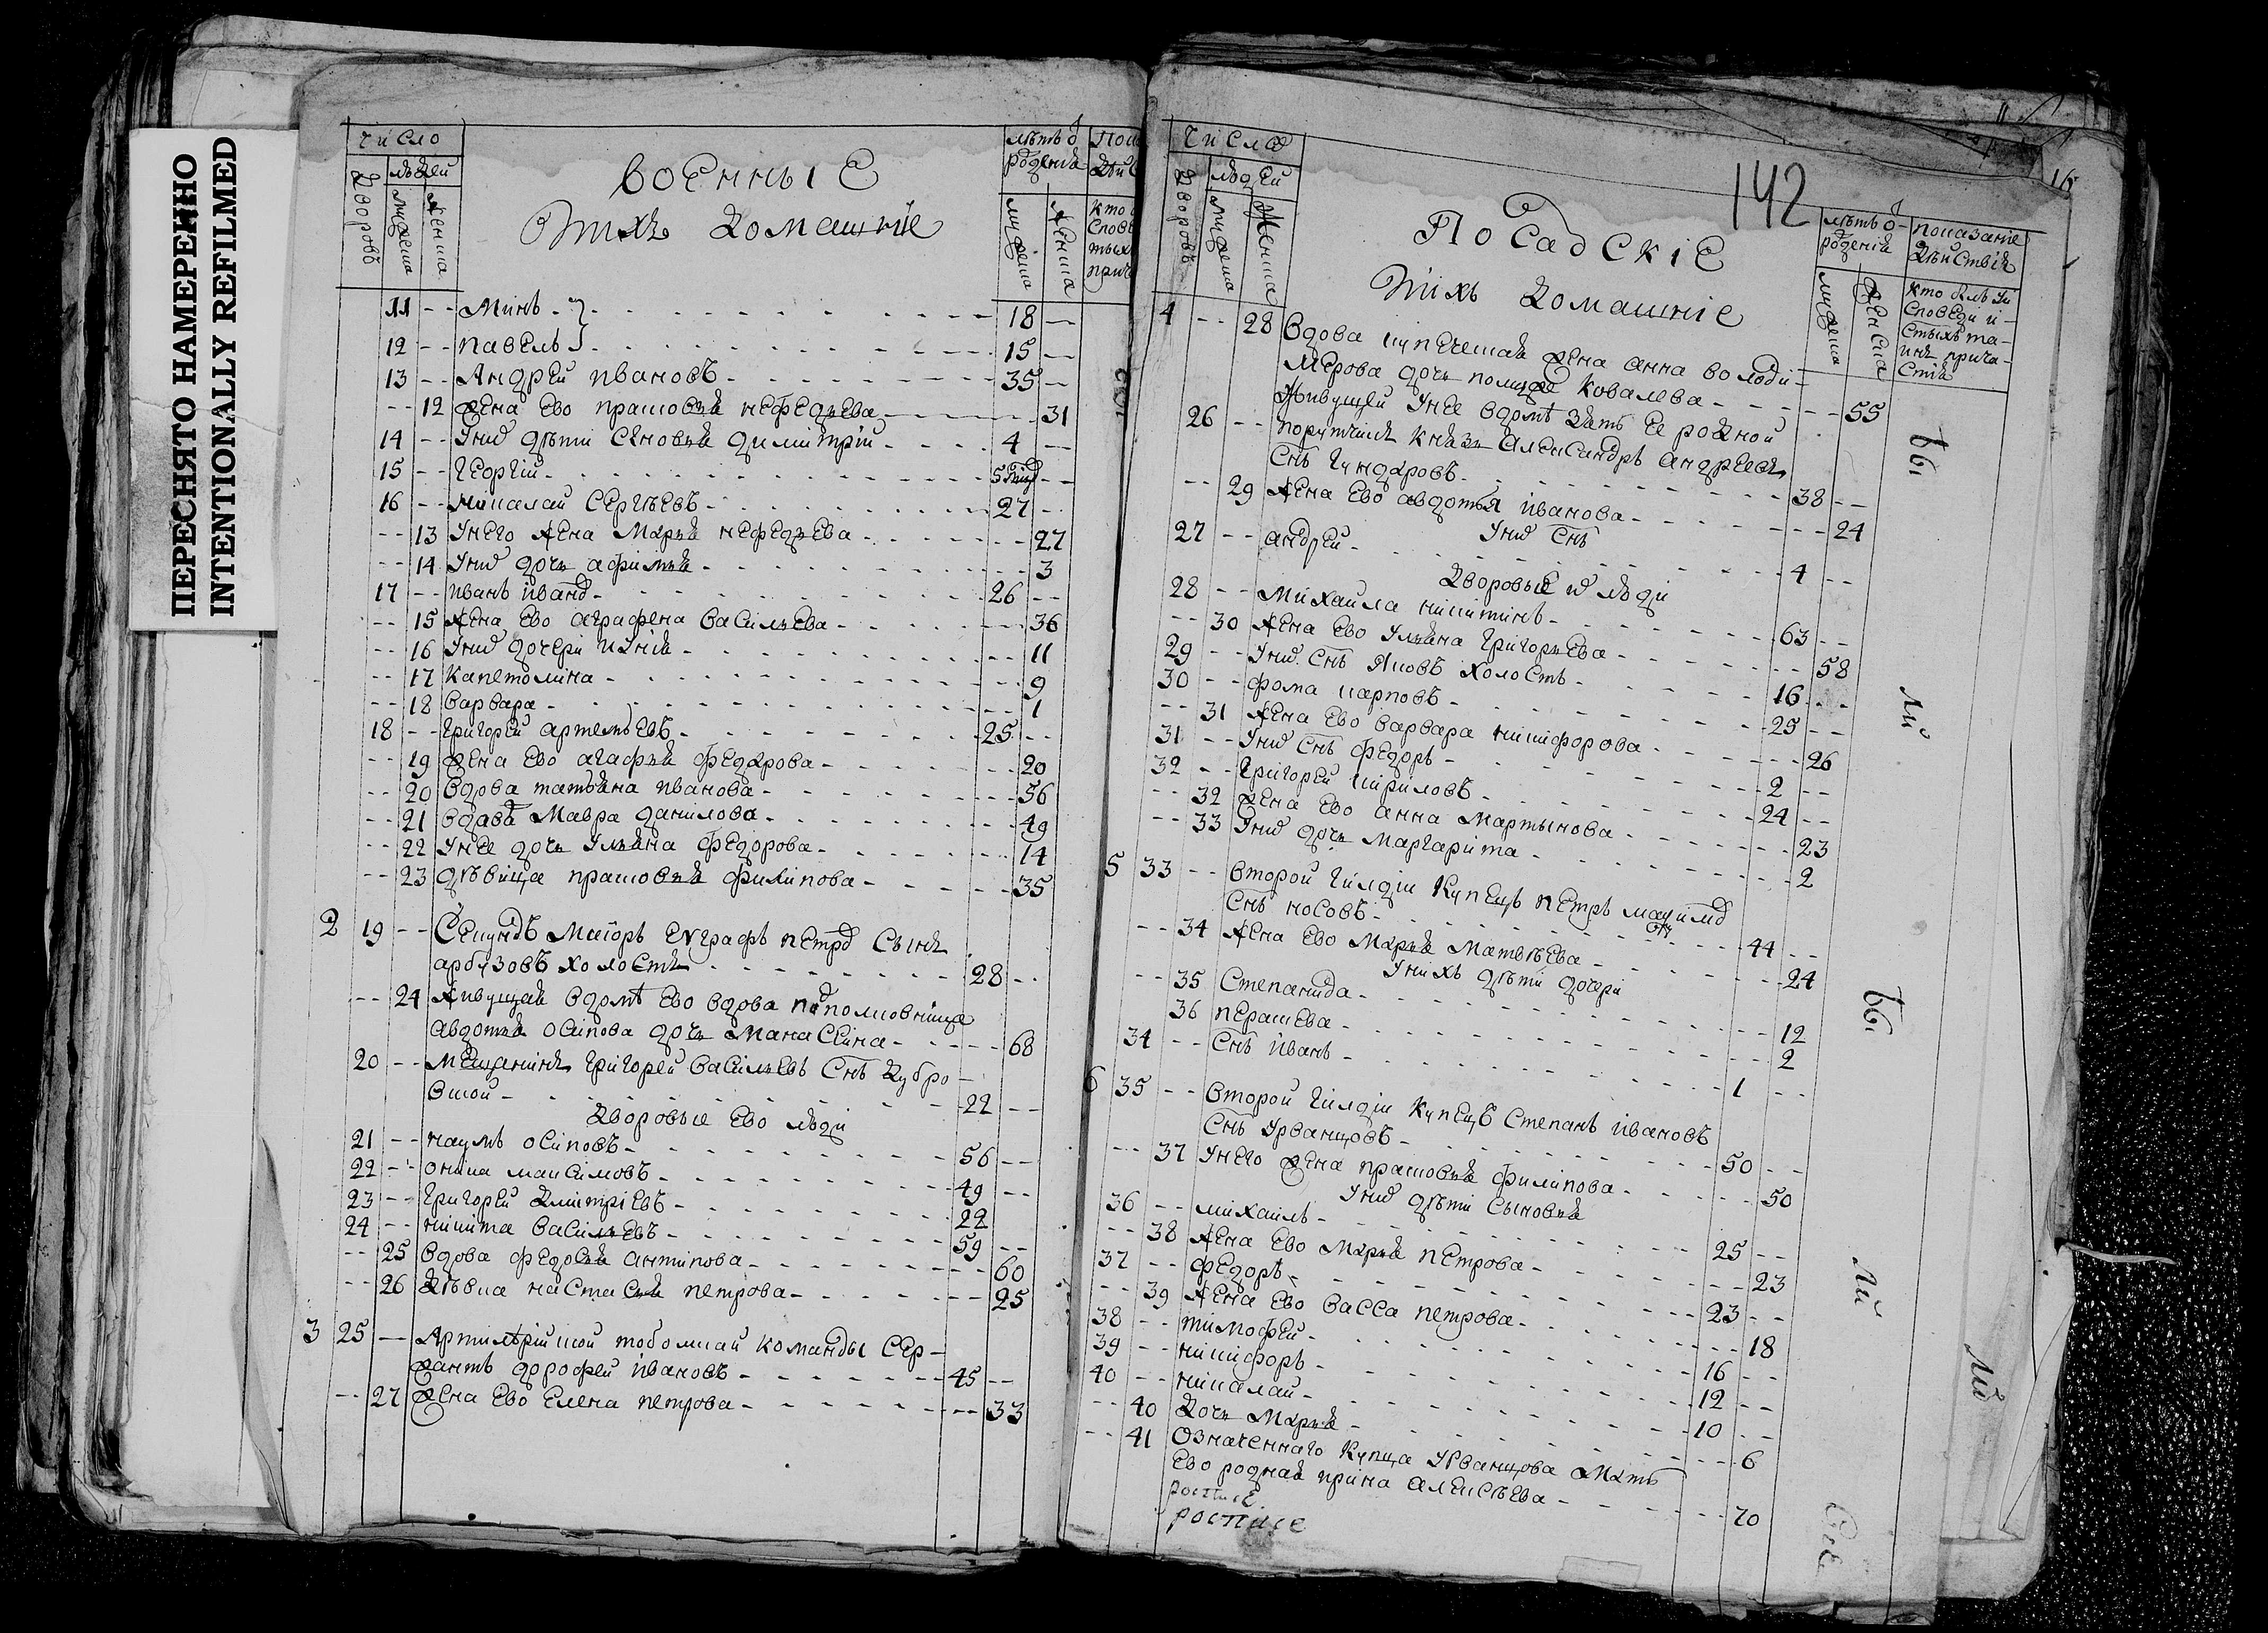 ПЕРЕСНЯТО НАМЕРЕННО
INTENTIONALLY REFILMED
число
людей
дворовъ
мужеска
женска
военныЕ
Ытихъ домашніе
лѣтъ о
рожденія
мужеска
женска
11 -- Минъ 18 --
12 -- павелъ 15 --
13 -- Андрей ивановъ 35 --
-- 12 жена Ево прасковья нефедьева 31
14 -- Унихъ дѣти сыновья димитрій 4 --
15 -- георгій
16 -- николай Сергѣевъ 27 --
-- 13 Унего жена Марья нефедьева -- 27
-- 14 Унихъ дочь афимья -- 3
17 -- иванъ ивановъ 26 --
-- 15 жена Ево аграфена васильева -- 36
-- 16 Унихъ дочери ксѣнія -- 11
-- 17 капетолина -- 9
-- 18 варвара -- 1
18 -- григорей артемьевъ 25 --
-- 19 жена Ево агафья федорова -- 20
-- 20 вдова татьяна иванова -- 56
-- 21 вдова Мавра данилова -- 49
-- 22 Унее дочь Ульяна федорова -- 14
-- 23 дѣвица прасковья филипова -- 35
2 19 -- Секундъ Маіоръ Еvграфъ петровъ сынъ
арбузовъ холостъ 28 --
-- 24 живущая вдомѣ Ево вдова подполковница
авдотья осипова дочь Манасеина -- 68
20 -- Мещанинъ григорей васильевъ Снъ дубро-
вской 22 --
дворовые Ево люди
21 -- наумъ осиповъ 56 --
22 -- оника максимовъ 49 --
23 -- григорей дмитріевъ 22
24 -- никита васильевъ 59 --
-- 25 вдова федосья антипова -- 60
-- 26 дѣвка настасья петрова -- 25
3 25 -- Артилѣрійской тобольской команды Сер-
жантъ дорофей ивановъ 45 --
-- 27 жена Ево Елена петрова -- 33
142
16
число
людей
дворовъ
мужеска
женска
ПосадскіЕ
Ытихъ домашніе
лѣтъ о-
рожденія
мужеска
женска
показаніе
дѣйствія
кто былъ уи
споведи и-
стыхъ та-
инъ прича-
стія
4 -- 28 Вдова купеческая жена анна володи-
мерова дочь Ковалева -- 55
живущей Унее вдомѣ зять Ее родной
26 -- порутчикъ князь Александръ андреевъ
Снъ гундоровъ 38 --
-- 29 жена Ево авдотья иванова -- 24
Унихъ Снъ
27 -- андрей 4 --
дворовые ихъ люди
28 -- Михаила никитинъ 63 --
-- 30 жена Ево Ульяна григорьева -- 58
29 -- Унихъ Снъ Яковъ холостъ 16 --
30 -- фома карповъ 25 --
-- 31 жена Ево варвара никифорова -- 26
31 -- Унихъ Снъ федоръ 2 --
32 -- григорей кириловъ 24 --
-- 32 жена Ево анна Мартынова -- 23
-- 33 Унихъ дочь Маргарита -- 2
5 33 -- второй гилдіи купецъ петръ
Снъ носовъ 44 --
-- 34 жена Ево Марья Матвѣева -- 24
Унихъ дѣти дочери
-- 35 Степанида -- 12
36 перасьева -- 2
34 -- Снъ иванъ 1 --
6 35 -- второй гилдіи купецъ Степанъ ивановъ
Снъ Урванцовъ 50 --
-- 37 Унего жена прасковья филипова -- 50
Унихъ дѣти сыновья
36 -- михаилъ 25 --
-- 38 жена Ево Марья петрова -- 23
37 -- федоръ 23 --
-- 39 жена Ево васса петрова -- 18
38 -- тимофей 16 --
39 -- никифоръ 12 --
40 -- николай 10 --
-- 40 дочь Марья -- 6
-- 41 Означеннаго купца Урванцова Мать
Ево родная ирина алексѣева -- 70
росписе
росписе